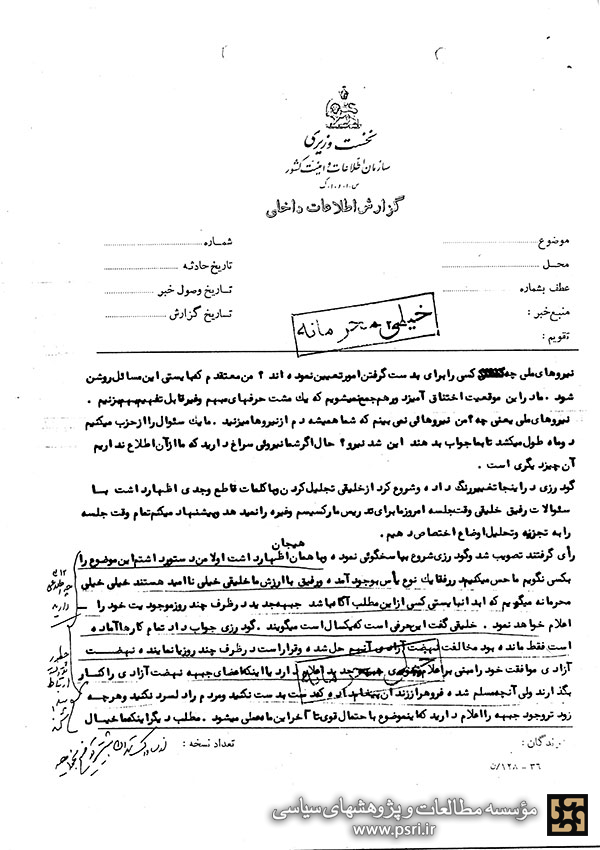 نخست وزیری
سازمان اطلاعات و امنیت کشور
س.ا.و.ا.ک
گزارش اطلاعات داخلی
موضوع
شماره
محل
تاریخ حادثه
عطف بشماره
تاریخ وصول خبر
منبع خبر :
تاریخ گزارش
تقویم :
خیلی محرمانه
نیروهای ملی چه کسی را برای بدست گرفتن امور تعیین نموده اند ؟ من معتقدم که بایستی این مسائل روشن
شود . ما در این موقعیت اختناق آمیز دور هم جمع نمیشویم که یک مشت حرفهای مبهم و غیر قابل تفهیم بهم بزنیم .
نیروهای ملی یعنی چه ؟ من نیروهائی نمی بینم که شما همیشه دم از نیروها میزنید . ما یک سئوال را از حزب میکنیم
دو ماه طول میکشد تا بما جواب بدهند این شد نیرو ؟ حال اگر شما نیروئی سراغ دارید که ما از آن اطلاع نداریم
آن چیز دیگری است .
گودرزی در اینجا تغییر رنگ داده و شروع کرد از خلیقی تجلیل کردن و با کلمات قاطع و جدی اظهار داشت با
سئوالات رفیق خلیقی وقت جلسه امروز ما برای تدریس مارکسیسم و غیره را نمیدهد و پیشنهاد میکنم تمام وقت جلسه
را به تجزیه و تحلیل اوضاع اختصاص دهیم .
رأی گرفتند تصویب شد و گودرزی شروع بپاسخگوئی نموده و با همان هیجان اظهار داشت اولا من دستور داشتم این موضوع را
بکسی نگویم ما حس میکنیم در رفقا یک نوع یأس بوجود آمده و رفیق با ارزش ما خلیقی خیلی ناامید هستند خیلی خیلی
محرمانه میگویم که ابدا نبایستی کسی از این مطلب آگاه باشد جبهه جدید در ظرف چند روز موجودیت خود را
اعلام خواهد نمود . خلیقی گفت این حرفی است که یکسال است میگویند . گودرزی جواب داد تمام کارها آماده
است فقط مانده بود مخالفت نهضت آزادی آنهم حل شده و قرار است در ظرف چند روز یا نماینده نهضت
آزادی موافقت خود را مبنی بر اعلام جبهه جدید اعلام دارد یا اینکه اعضای جبهه نهضت آزادی را کنار
بگذارند ولی آنچه مسلم شده فروهر از زندان پیغام داده که دست بدست نکنید و مردم را دلسرد نکنید و هر چه
زودتر وجود جبهه را اعلام دارید که این موضوع با احتمال قوی تا آخر این ماه عملی میشود . مطلب دیگر اینکه ما خیال
گیرندگان :
تعداد نسخه :
۳۶ - ۱۲۸/ن
مؤسسه مطالعات و پژوهشهای سیاسی
www.psri.ir